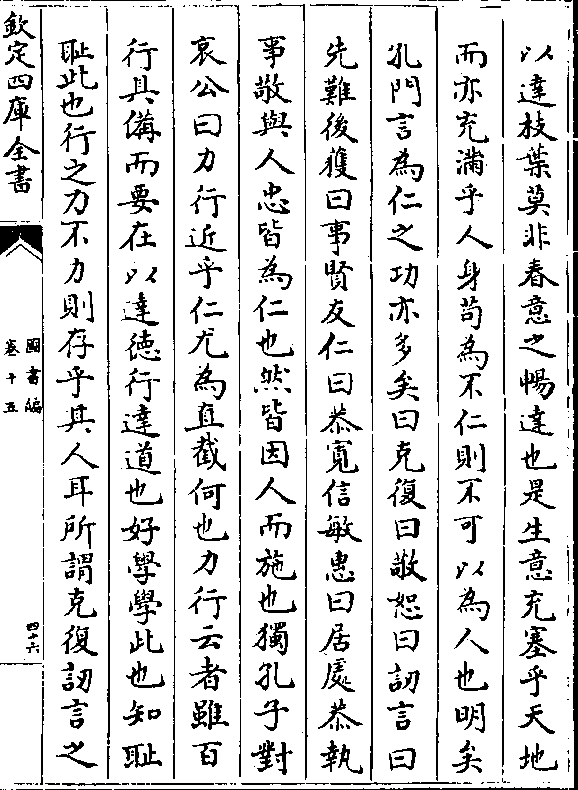 以達枝葉莫非春意之暢達也是生意充塞乎天地
而亦充滿乎人身苟為不仁則不可以為人也明矣
孔門言為仁之功亦多矣曰克復曰敬恕曰訒言曰
先難後獲曰事賢友仁曰恭寬信敏惠曰居處恭執
事敬與人忠皆為仁也然皆因人而施也獨孔子對
哀公曰力行近乎仁尤為直截何也力行云者雖百
行具備而要在以達德行達道也好學學此也知恥
恥此也行之力不力則存乎其人耳所謂克復訒言之
欽定四庫全書
圖書編
卷十五
四十六